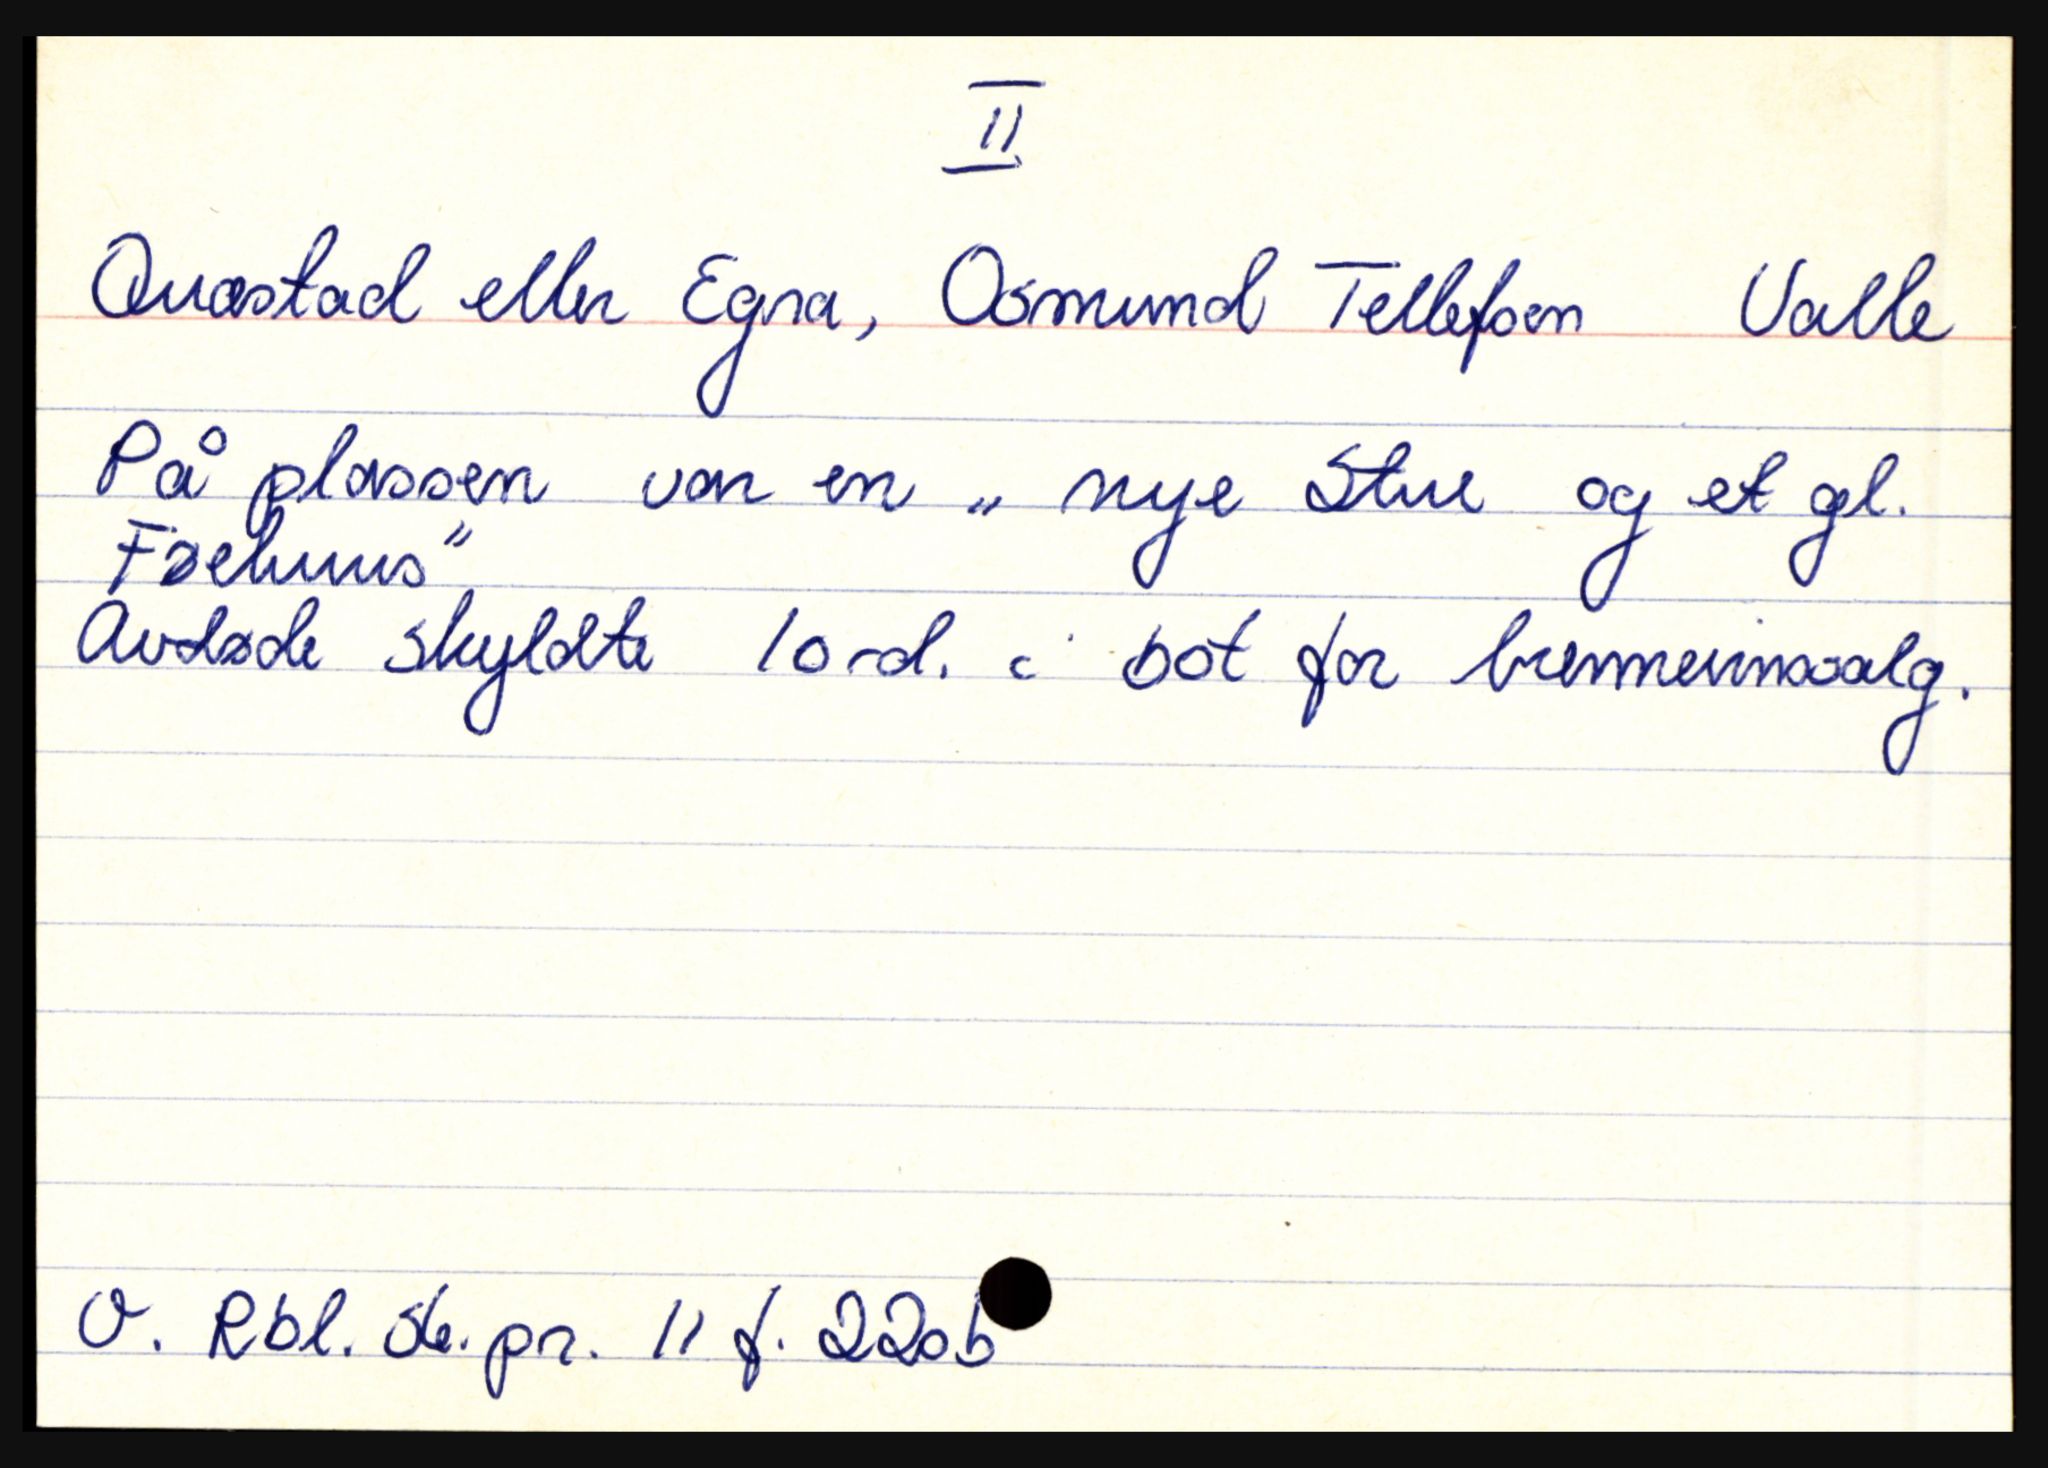 II
Quastad eller Egra, Osmund Tellefsen Valle
På plassen var en „ nye Stue og et gl.
Fæehuus"
Avdøde skyldte 10 rd. i bot for brennevinssalg.
O. Rbl. Sk. pr. 11 f. 220b